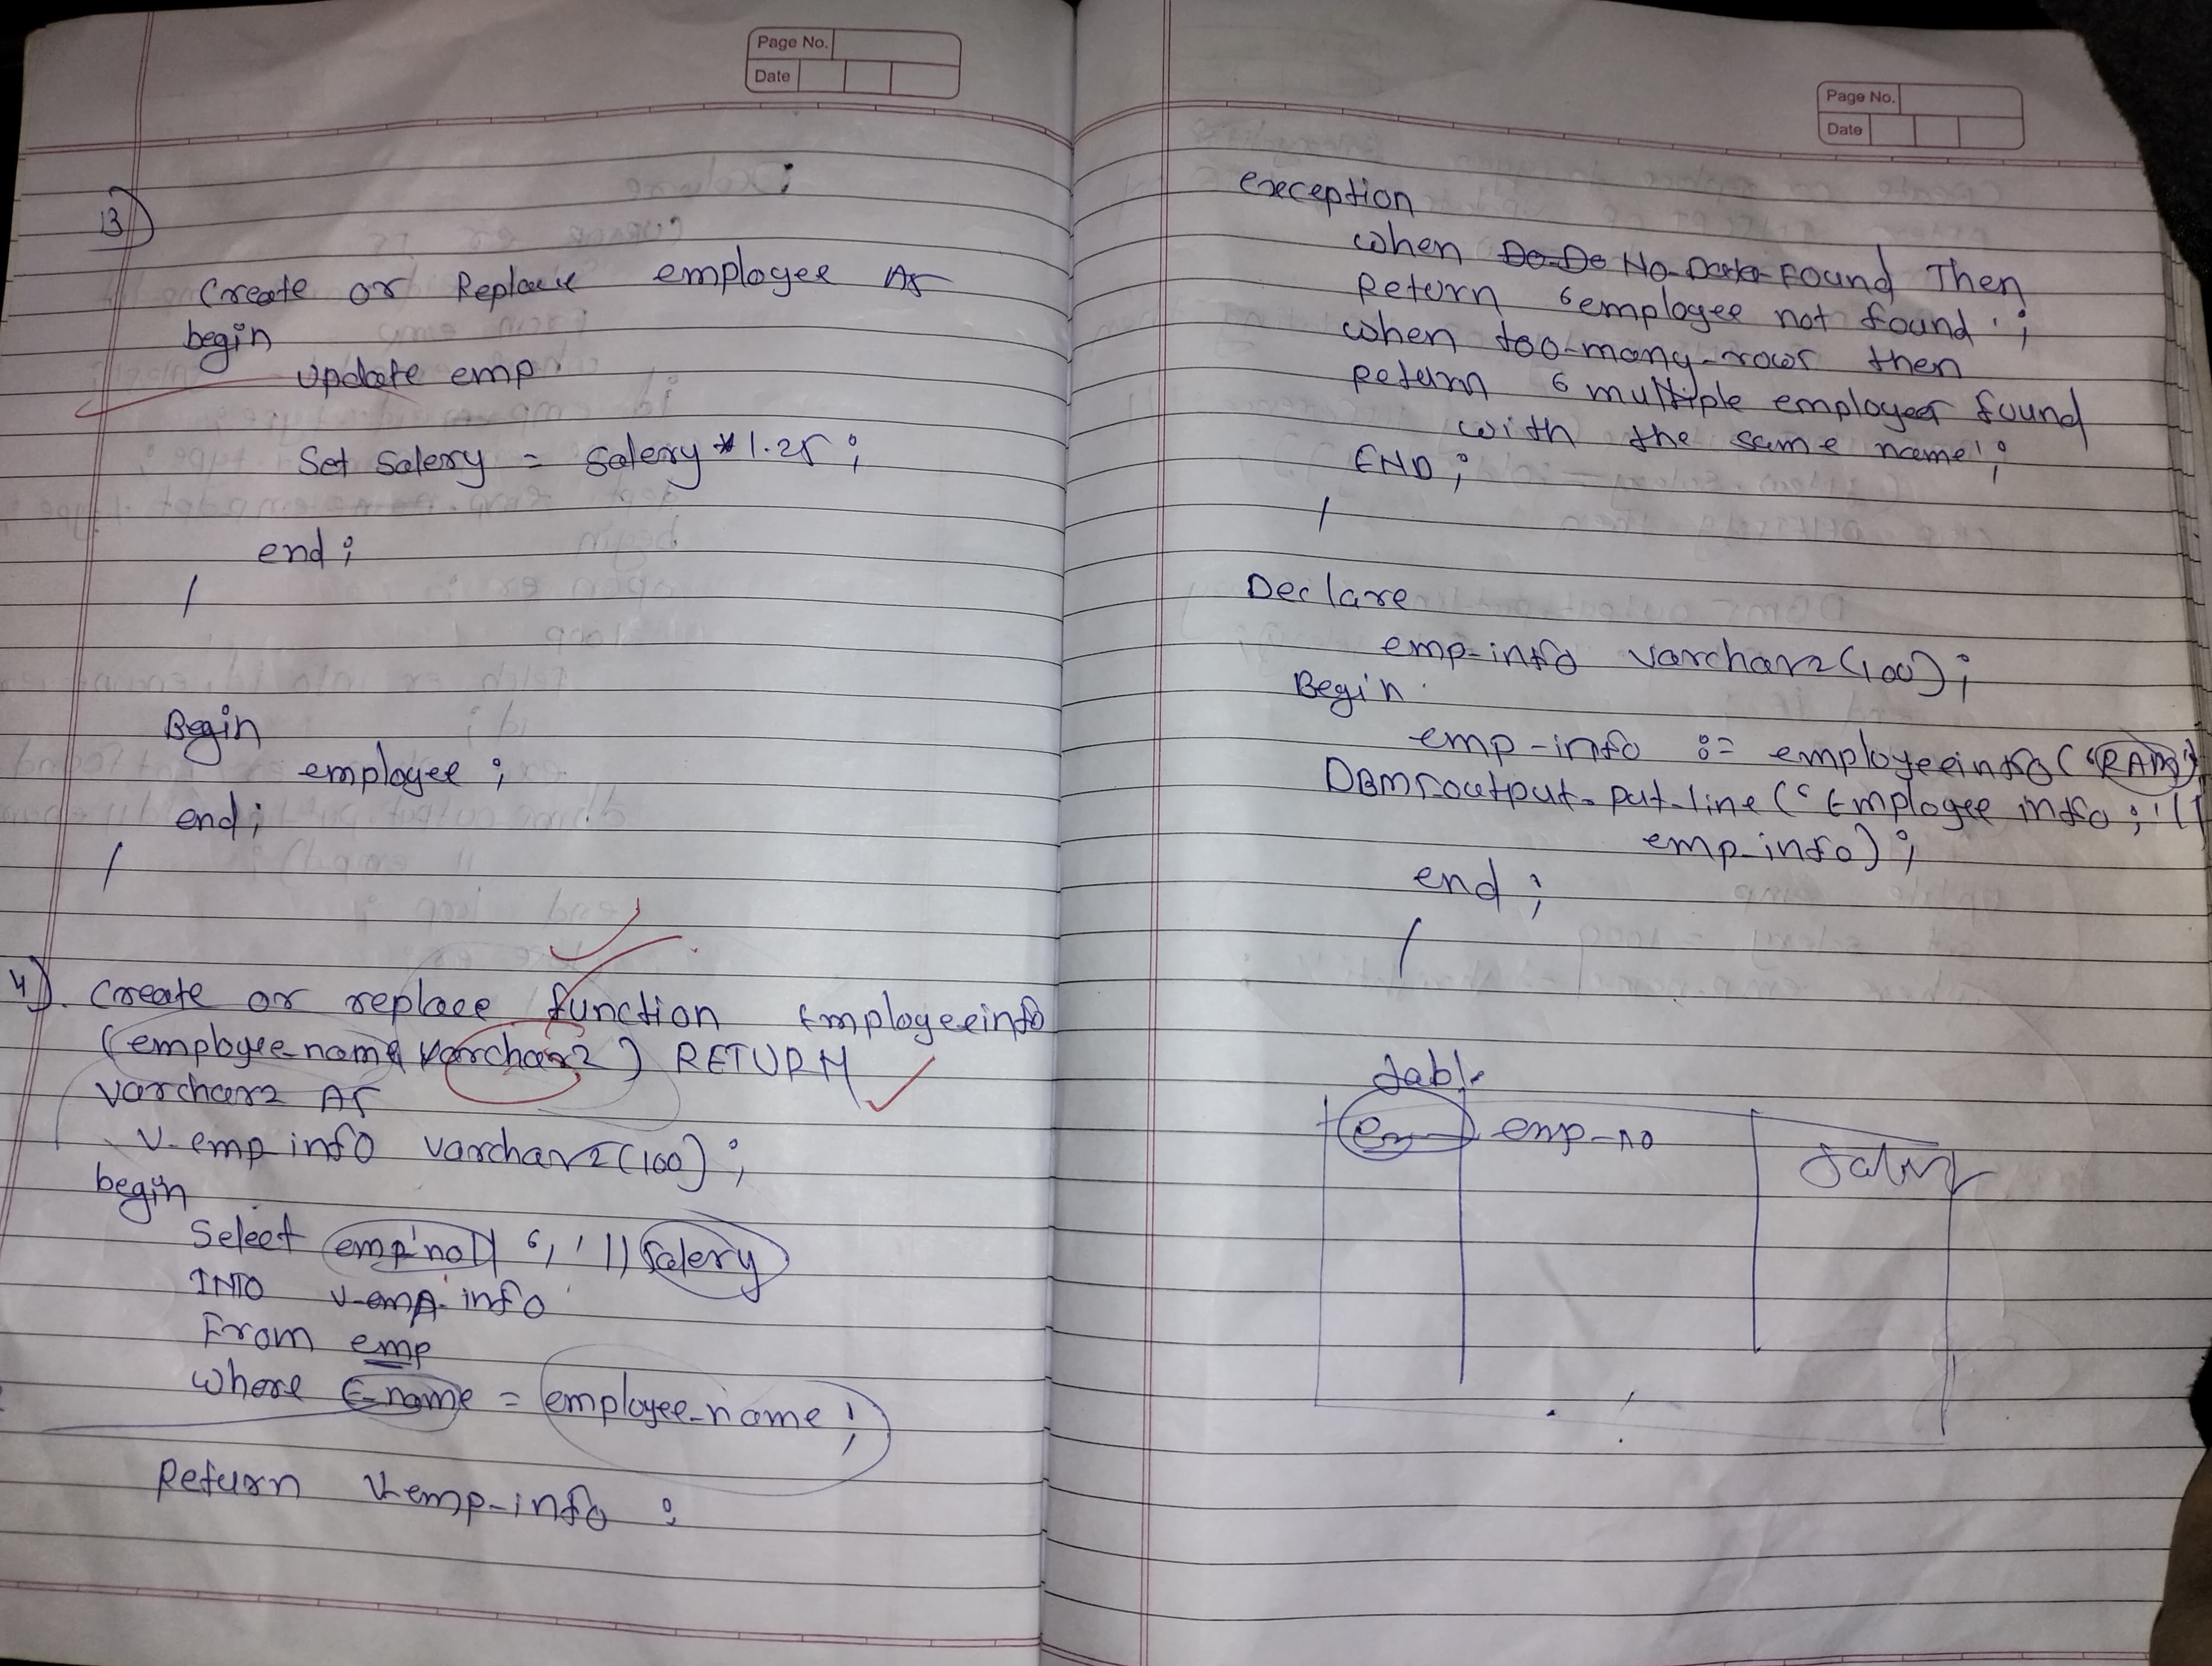 Page No.
Date
13)
Create or Replace employee As
begin
update emp
Set Salery = Salery * 1.25 ;
end ;
/
Begin
employee ;
end ;
/
4). Create or replace function Employeeinfo
(employee-name varchar2) RETURN
varchar2 As
v-emp info varchar2(100) ;
begin
Select emp'no|| ',' || Salery
INTO v-emp-info
From emp
where E-name = employee-name ;
Return v-emp-info ;
Page No.
Date
exception
when No-Data-Found Then
Return 'employee not found' ;
when too-many-rows then
Return 'multiple employees found
with the same name' ;
END ;
/
Declare
emp-info varchar2(100) ;
Begin
emp-info := employeeinfo('RAM');
DBMS-output.put-line('Employee info ; ' ||
emp-info) ;
end ;
/
table
emp-no